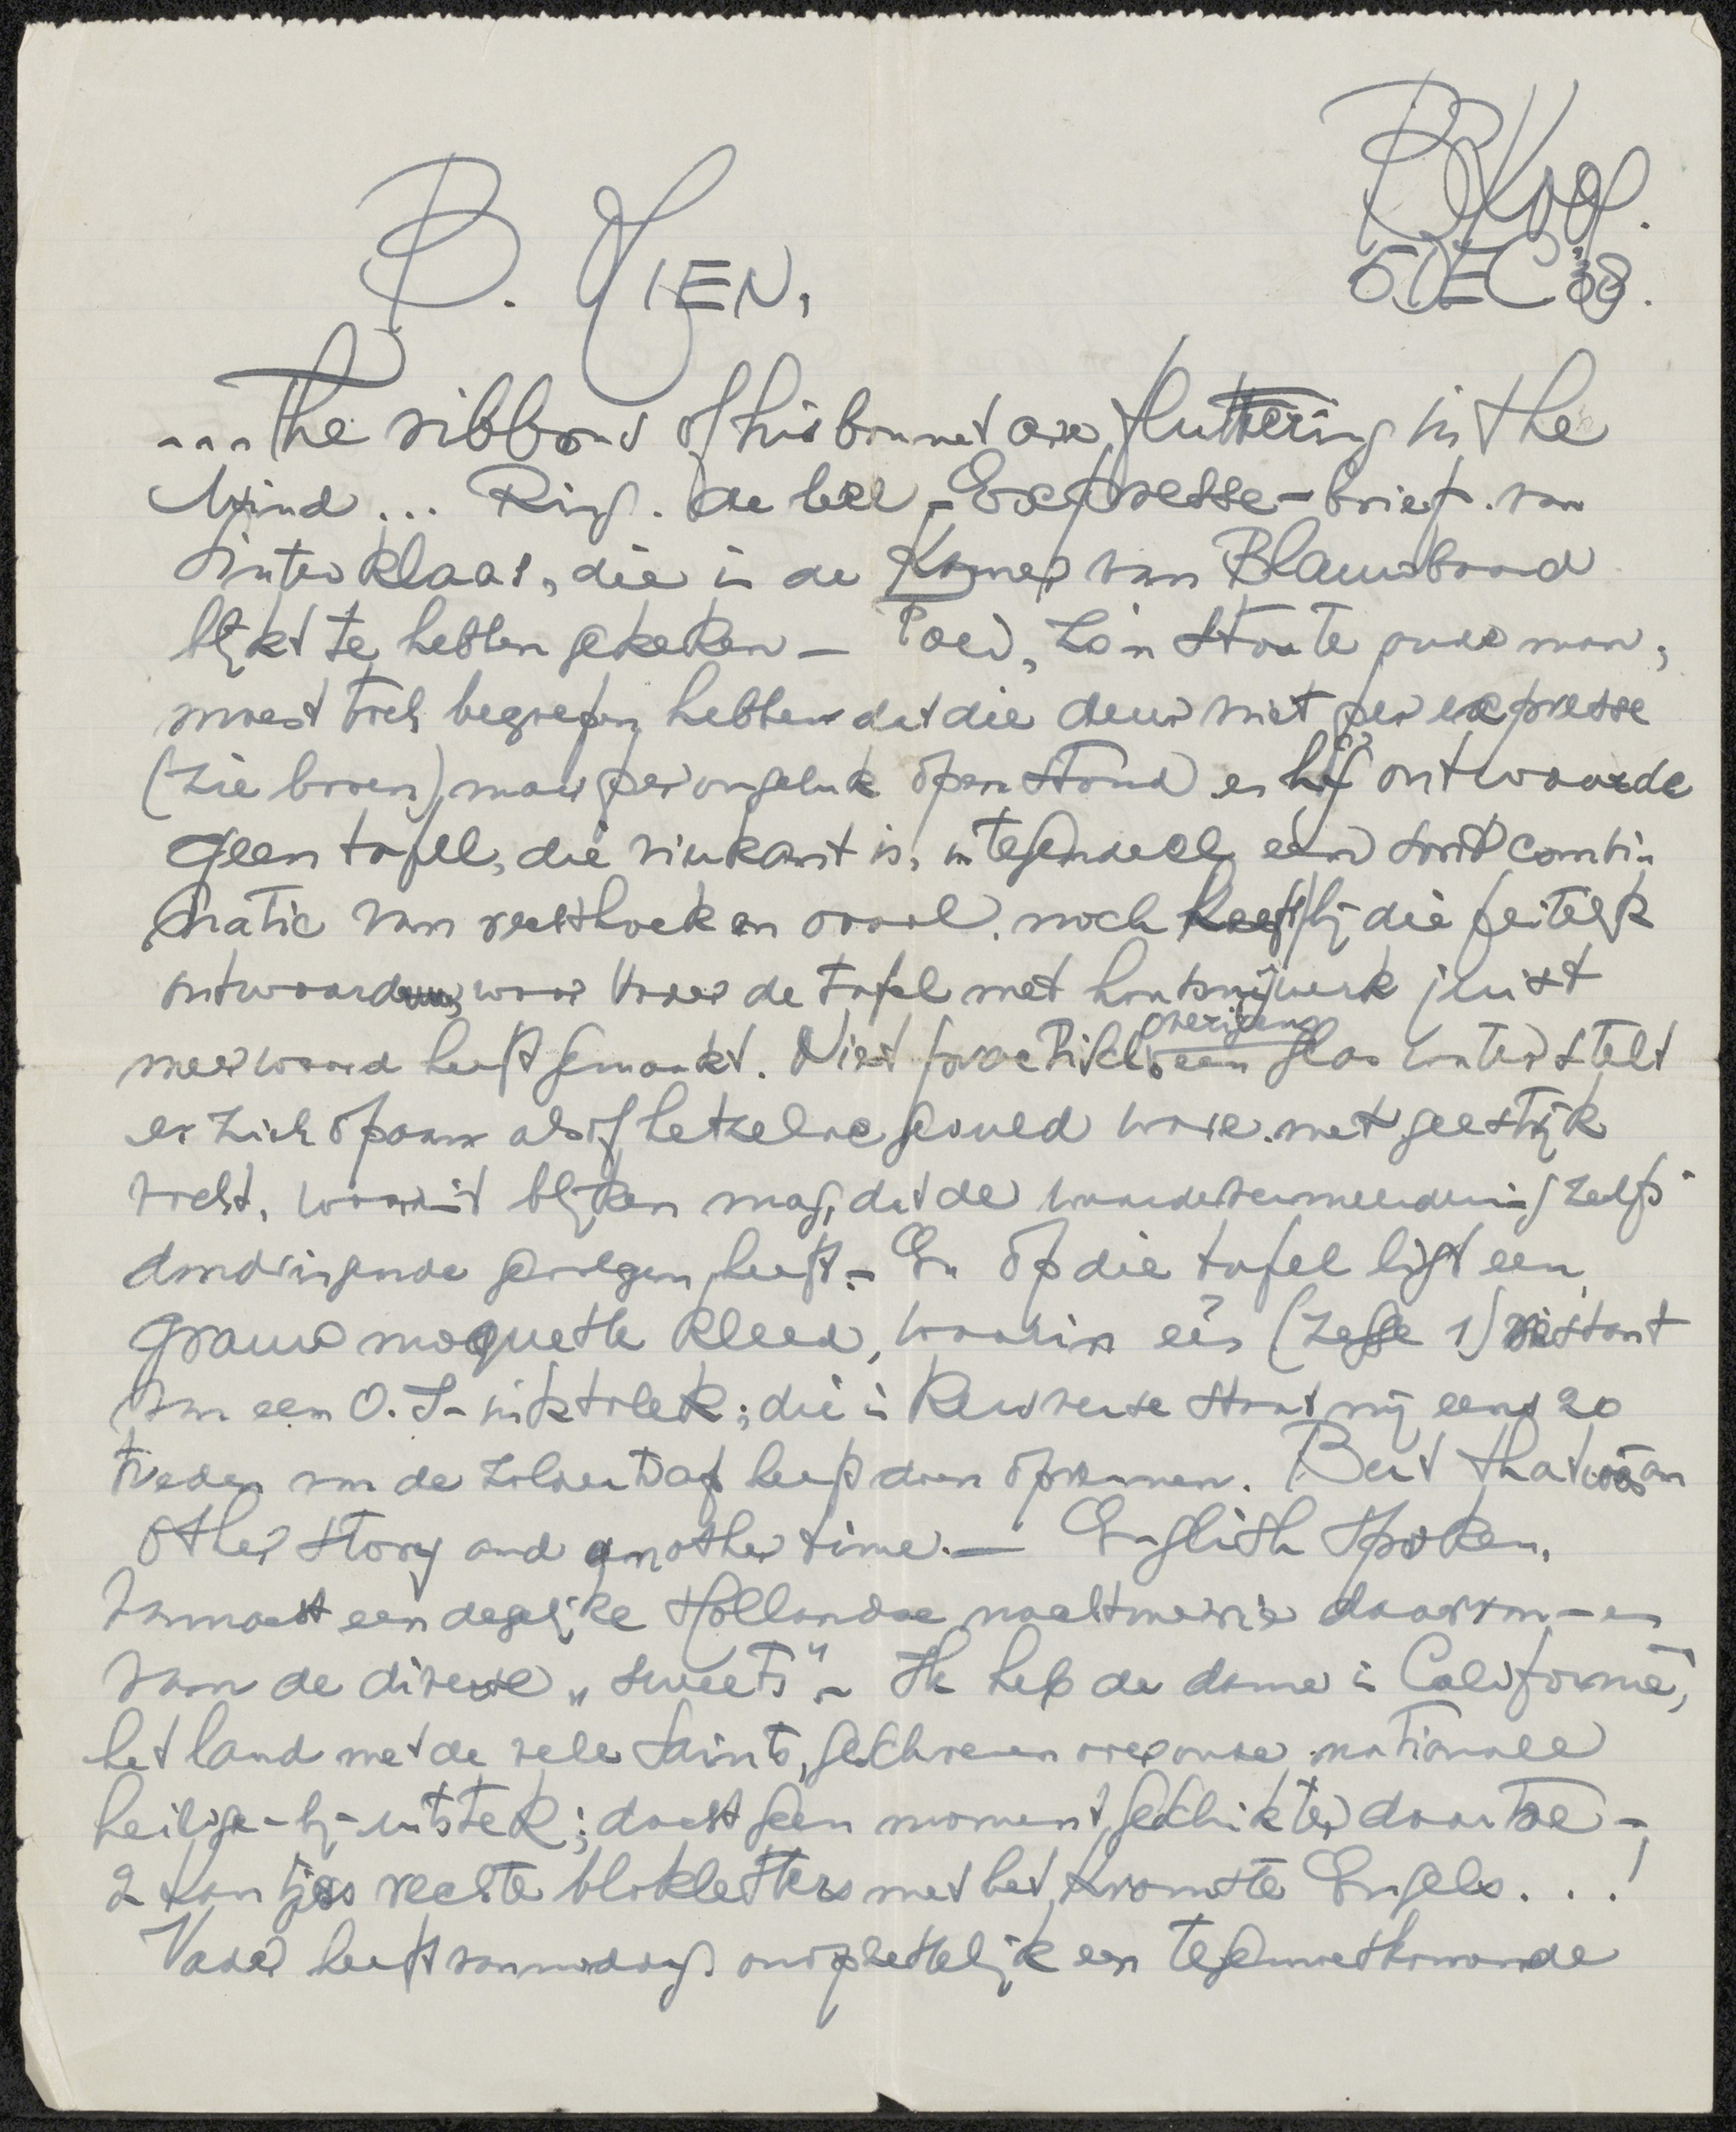 BKoop.
5 DEC '38.
B. MIEN,
... The ribbons of his bonnet are fluttering in the
wind ... Ring. de bel - Expresse-brief. van
Sinterklaas, die in de Kamer van Blauwbaard
blijkt te hebben gekeken — Foei, zo'n stoute oude man,
moest toch begrepen hebben dat die deur niet per expresse
(zie boven) maar per ongeluk open stond en hij ontwaarde
geen tafel, die vierkant is, integendeel een soort combi
natie van rechthoek en ovaal. noch heeft hij die feitelijk
ontwaard, waar Vader de tafel met houtsnijwerk juist
meer waard heeft gemaakt. Niet practisch overigens een glas water stelt
er zich op aan alsof hetzelve gevuld ware met geestrijk
vocht, waaruit blijken mag, dat de waardevermeerdering zelfs
doordringende gevolgen heeft. - En op die tafel ligt een
grauw moquette kleed, waarin één (zegge 1)
van een O.I- inktvlek; die in Keurse straat mij eens 20
treden van de zoldertrap heeft doen opkomen. But that was an
other story and another time. — English spoken.
Vannacht een degelijke Hollandse nachtmerrie daarvan - en
van de diverse „sweets" - Ik heb de dame in Californië,
het land met de vele Saints, geschreven over onze nationale
heilige-bij-uitstek; dacht geen moment geschikter daartoe -
2 kantjes rechte blokletters met het kromste Engels. . . !
Vader heeft vanmiddag onophettelijk een